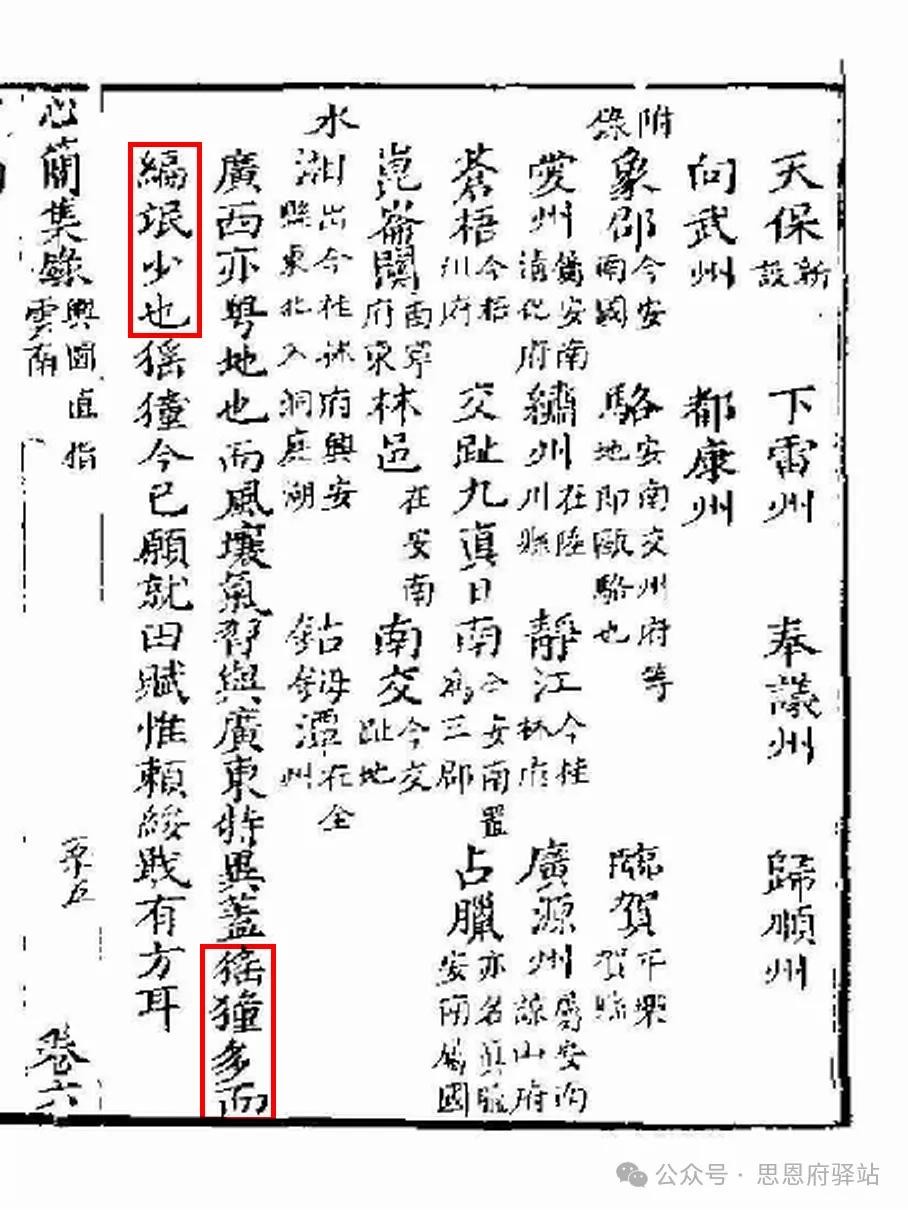 天保新設 下雷州 奉議州 歸順州
向武州 都康州
附錄
象郡今安南國 駱安南交州府等地即甌駱也 臨賀平樂賀縣
愛州屬安南清化府 繡州在陸川縣 靜江今桂林府 廣源州屬安南諒山府
蒼梧今梧州府 交趾九真日南今安南置為三郡 占臘亦名真臘安南屬國
崑崙關南寧府東 林邑在安南 南交今交趾地
水
湘出今桂林府興安縣東北入洞庭湖 鈷鉧潭在全州
廣西亦粤地也而風壤氣習與廣東特異蓋猺獞多而
編氓少也猺獞今已願就田賦惟賴綏戢有方耳
心簡集錄 輿圖直指 雲南 卷六
公众号 · 思恩府驿站